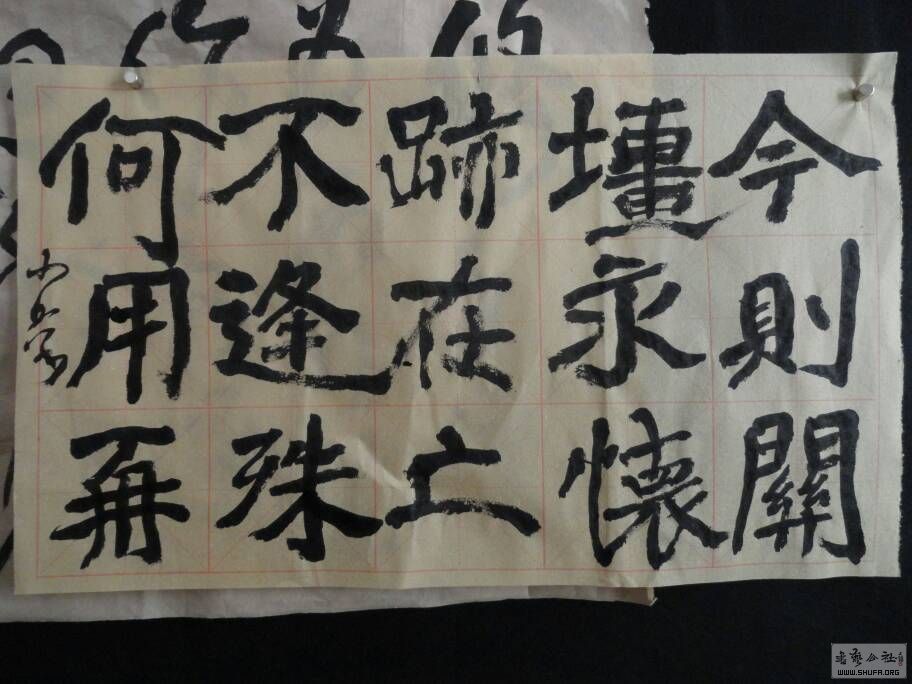 今則關
壃永懷
跡在亡
不逢殊
何用再
書藝公社
WWW.SHUFA.ORG